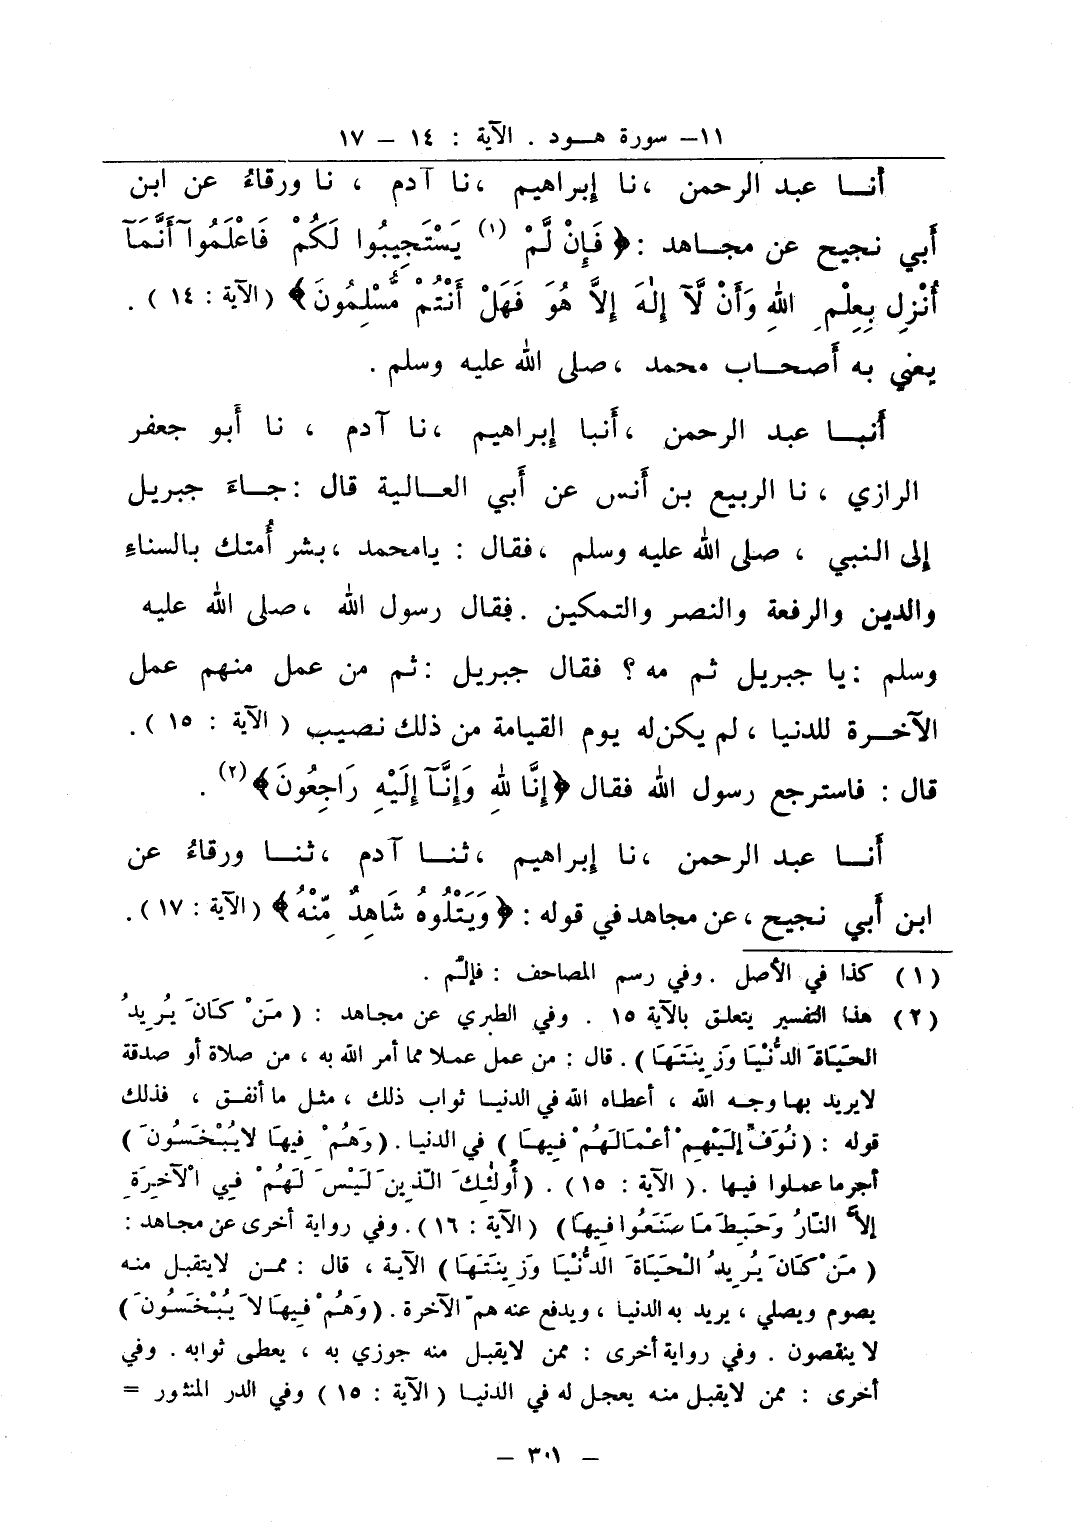 ١١- سورة هـود . الآية : ١٤ - ١٧
أنـا عبد الرحمن ، نا إبراهيم ، نا آدم ، نا ورقاءُ عن ابن
أبي نجيح عن مجـاهد : ﴿ فَإِنْ لَّمْ (١) يَسْتَجِيبُوا لَكُمْ فَاعْلَمُوآ أَنَّمَآ
أُنْزِل بِعِلْمِ اللهِ وَأَنْ لَّآ إِلٰهَ إِلاَّ هُوَ فَهَلْ أَنْتُمْ مُّسْلِمُونَ ﴾ ( الآية : ١٤ ) .
يعني به أصحـاب محمد ، صلى الله عليه وسلم .
أنبـا عبد الرحمن ، أنبا إبراهيم ، نا آدم ، نا أبو جعفر
الرازي ، نا الربيع بن أنس عن أبي العـالية قال : جـاءَ جبريل
إلى النبي ، صلى الله عليه وسلم ، فقال : يامحمد ، بشر أُمتك بالسناءِ
والدين والرفعة والنصر والتمكين . فقال رسول الله ، صلى الله عليه
وسلم : يا جبريل ثم مه ؟ فقال جبريل : ثم من عمل منهم عمل
الآخـرة للدنيا ، لم يكن له يوم القيامة من ذلك نصيب ( الآية : ١٥ ) .
قال : فاسترجع رسول الله فقال ﴿ إِنَّا للهِ وَإِنَّآ إِلَيْهِ رَاجِعُونَ ﴾ (٢) .
أنـا عبد الرحمن ، نا إبراهيم ، ثنـا آدم ، ثنـا ورقاءُ عن
ابن أبي نجيح ، عن مجاهد في قوله : ﴿ وَيَتْلُوهُ شَاهِدٌ مِّنْهُ ﴾ ( الآية : ١٧ ) .
(١) كذا في الأصل . وفي رسم المصاحف : فإلَّم .
(٢) هذا التفسير يتعلق بالآية ١٥ . وفي الطبري عن مجاهد : ( مَنْ كَانَ يُرِيدُ
الحَيَاةَ الدُّنْيَا وَزِينَتَهَا ) . قال : من عمل عملا مما أمر الله به ، من صلاة أو صدقة
لايريد بها وجه الله ، أعطاه الله في الدنيا ثواب ذلك ، مثل ما أنفق ، فذلك
قوله : ( نُوَفِّ إِلَيْهِمْ أَعْمَالَهُمْ فِيهَا ) في الدنيا . ( وَهُمْ فِيهَا لايُبْخَسُونَ )
أجرما عملوا فيها . ( الآية : ١٥ ) . ( أُولٰئِكَ الَّذِينَ لَيْسَ لَهُمْ فِي الْآخِرَةِ
إلاَّ النَّارُ وَحَبِطَ مَا صَنَعُوا فِيهَا ) ( الآية : ١٦ ) . وفي رواية أخرى عن مجاهد :
( مَنْ كَانَ يُرِيدُ الْحَيَاةَ الدُّنْيَا وَزِينَتَهَا ) الآية ، قال : ممن لايتقبل منه
يصوم ويصلي ، يريد به الدنيا ، ويدفع عنه همّ الآخرة . ( وَهُمْ فِيهَا لاَ يُبْخَسُونَ )
لا ينقصون . وفي رواية أخرى : ممن لايقبل منه جوزي به ، يعطى ثوابه . وفي
أخرى : ممن لايقبل منه يعجل له في الدنيا ( الآية : ١٥ ) وفي الدر المنثور =
- ٣٠١ -